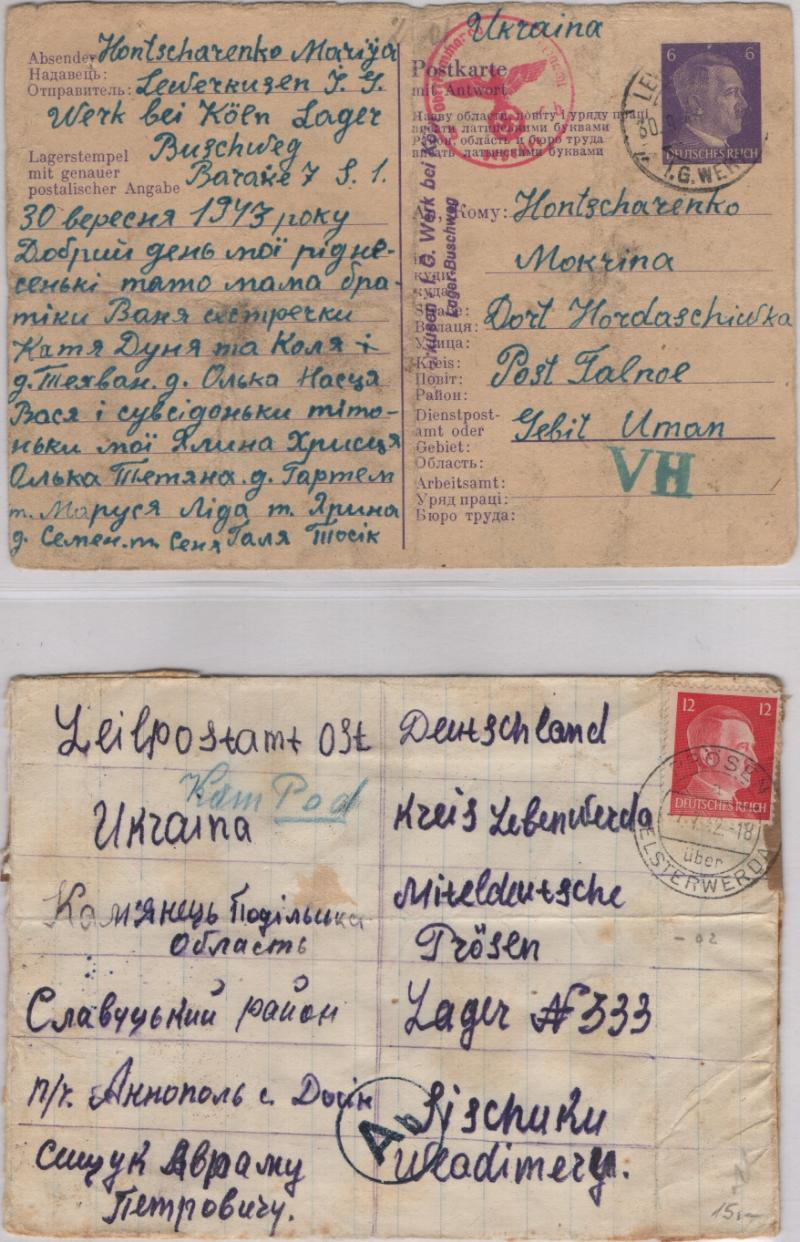 Ukraina
Absender: Hontscharenko Mariya
Надавець:
Отправитель: Lewerkusen I. G.
Werk bei Köln Lager
Buschweg
Lagerstempel
mit genauer
postalischer Angabe
Baraкe 7 S. 1.
30 вересня 1943 року
Добрий день мої рідне-
сенькі тато мама бра-
тіки Ваня сестречки
Катя Дуня та Коля і
д. Олька Насця
Вася і сувсідоньки тіто-
ньки мої Ялина Хрисця
Олька Тетяна д. Гартем
т. Маруся Ліда т. Ярина
д. Семен. т. Сеня Галя Тосік
Postkarte
mit Antwort
Назву области, пошти і уряду праці
писати латинськими буквами
Район, область и бюро труда
писать латинскими буквами
6 6
DEUTSCHES REICH
30.9.
I.G. WERK
I. G. Werk bei Köln
Lager-Buschweg
An, Кому: Hontscharenko
Mокrina
куди
куда
Straße:
Вулиця:
Улица:
Dorf Hordaschiwka
Kreis:
Повіт:
Район:
Post Talnoe
Dienstpost-
amt oder
Gebiet:
Область:
Gebit Uman
VH
Arbeitsamt:
Уряд праці:
Бюро труда:
Leilpostamt Ost
Kam Pod
Ukraina
Кам'янець Подільська
Область
Славуцький район
п/ч. Аннополь с. Досін
сищук Авраму
Петровичу.
Deutschland
Kreis Lebenwerda
Miteldeutsche
Prösen
Lager № 333
Sischuku
Wladimeru.
12 12
DEUTSCHES REICH
PRÖSEN
über
ELSTERWERDA
Ab
-02
15.-